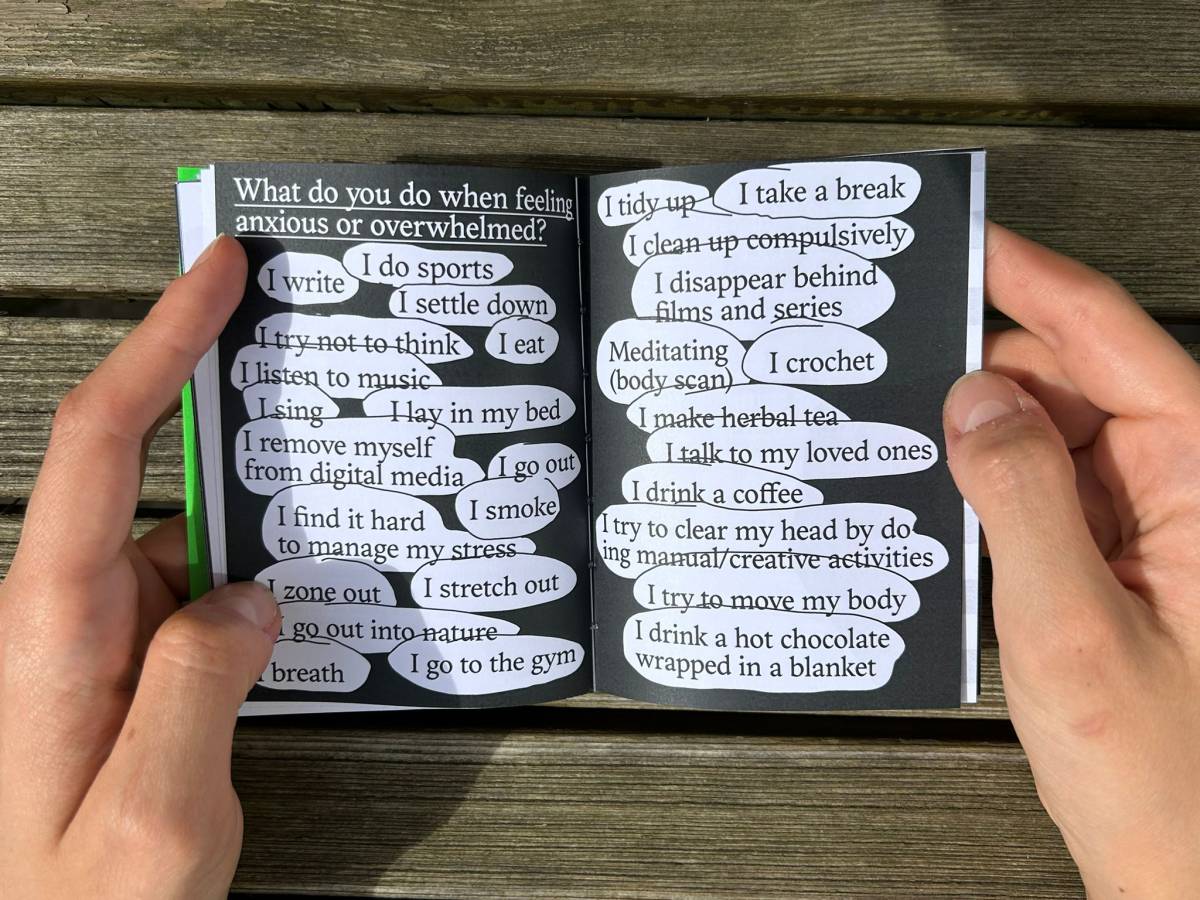 What do you do when feeling
anxious or overwhelmed?
I write
I do sports
I settle down
I try not to think
I eat
I listen to music
I sing
I lay in my bed
I remove myself
from digital media
I go out
I smoke
I find it hard
to manage my stress
I zone out
I stretch out
I go out into nature
I breath
I go to the gym
I tidy up
I take a break
I clean up compulsively
I disappear behind
films and series
Meditating
(body scan)
I crochet
I make herbal tea
I talk to my loved ones
I drink a coffee
I try to clear my head by do-
ing manual/creative activities
I try to move my body
I drink a hot chocolate
wrapped in a blanket